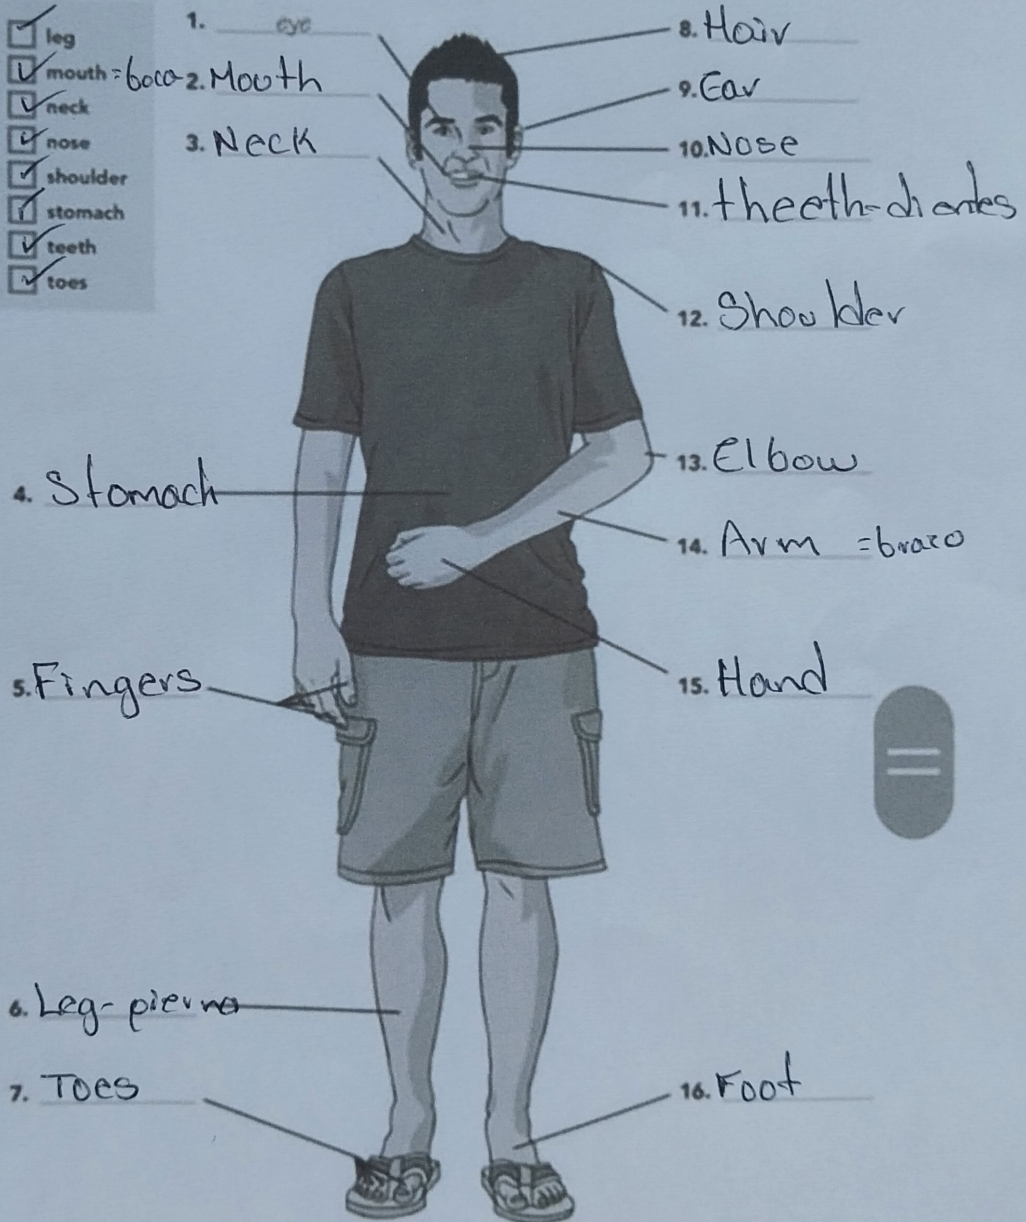 leg
mouth = boca
neck
nose
shoulder
stomach
teeth
toes
1. eye
2. Mouth
3. Neck
4. Stomach
5. Fingers
6. Leg- pierna
7. Toes
8. Hair
9. Ear
10. Nose
11. theeth-dientes
12. Shoulder
13. Elbow
14. Arm = brazo
15. Hand
16. Foot